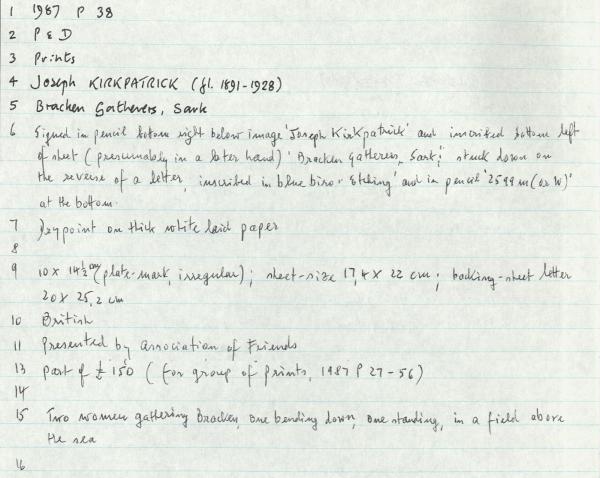 1 1987 P 38
2 P & D
3 Prints
4 Joseph KIRKPATRICK (fl. 1891-1928)
5 Bracken Gatherers, Sark
6 Signed in pencil bottom right below image 'Joseph Kirkpatrick' and inscribed bottom left
of sheet (presumably in a later hand) 'Bracken Gatherers, Sark'; stuck down on
the reverse of a letter, inscribed in blue biro 'Etching' and in pencil '2599 m (or W)'
at the bottom.
7 Drypoint on thick white laid paper
8
9 10 x 14½ cm (plate-mark, irregular); sheet-size 17,4 x 22 cm; backing-sheet letter
20 x 25,2 cm
10 British
11 Presented by Association of Friends
13 part of £ 150 (for group of prints, 1987 P 27-56)
14
15 Two women gathering Bracken, one bending down, one standing, in a field above
the sea
16